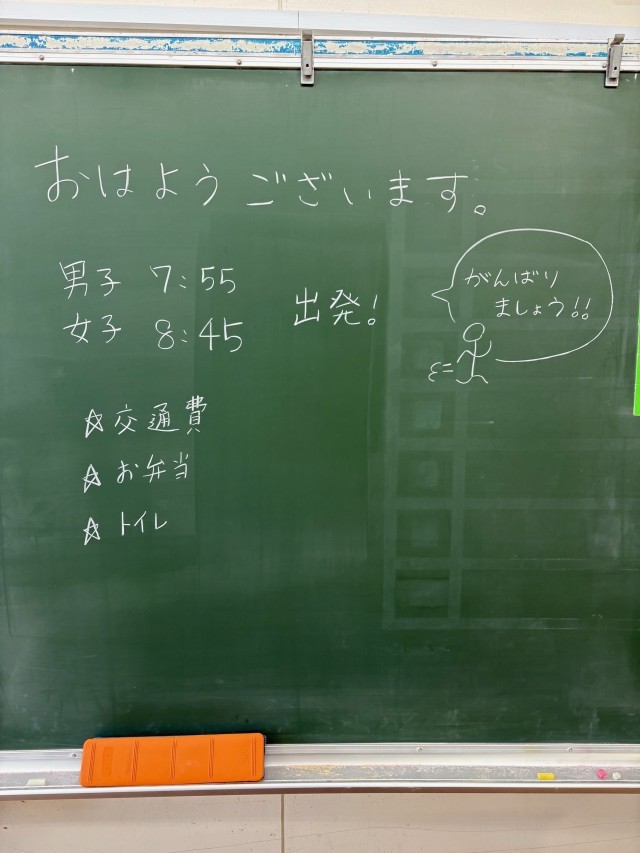 おはようございます。
男子 7:55
女子 8:45
出発!
がんばり
ましょう!!
☆交通費
☆お弁当
☆トイレ